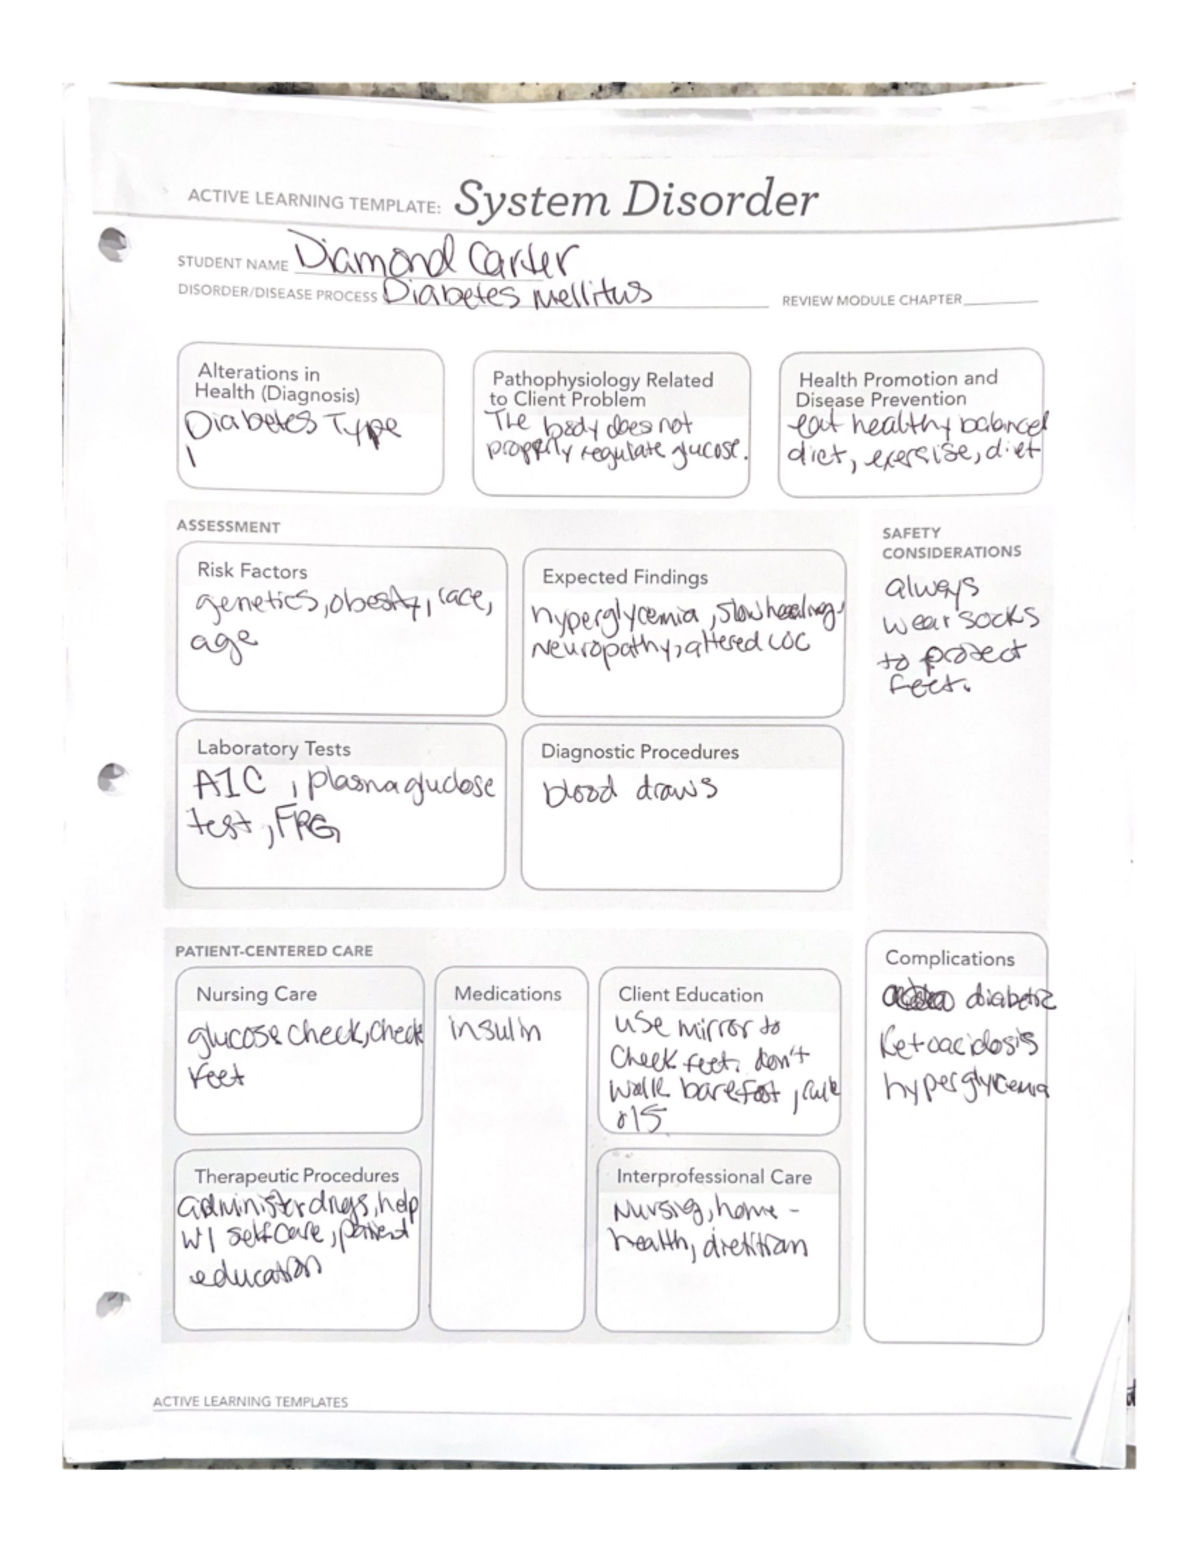 ACTIVE LEARNING TEMPLATE: System Disorder
STUDENT NAME Diamond Carter
DISORDER/DISEASE PROCESS Diabetes Mellitus
REVIEW MODULE CHAPTER
Alterations in
Health (Diagnosis)
Diabetes Type
1
Pathophysiology Related
to Client Problem
The body does not
properly regulate glucose.
Health Promotion and
Disease Prevention
eat healthy balanced
diet, exersise, diet
ASSESSMENT
Risk Factors
genetics, obesity, race,
age
Expected Findings
hyperglycemia, slow healing,
Neuropathy, altered LOC
SAFETY
CONSIDERATIONS
always
wear socks
to protect
feet.
Laboratory Tests
A1C, plasma glucose
test,
Diagnostic Procedures
blood draws
PATIENT-CENTERED CARE
Nursing Care
glucose check, check
feet
Medications
insulin
Client Education
use mirror to
check feet. don't
walk barefoot, rule
of 15
Complications
diabetic
Ketoacidosis
hyperglycemia
Therapeutic Procedures
administer drugs, help
w/ self care, patient
education
Interprofessional Care
Nursing, home-
health, dietitian
ACTIVE LEARNING TEMPLATES